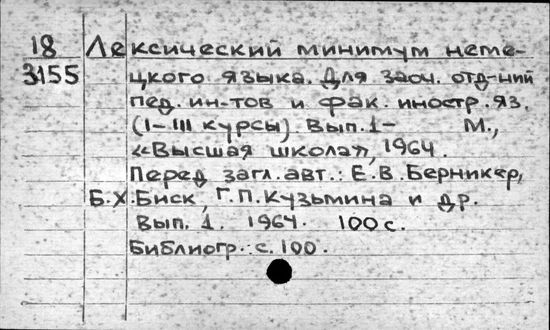 18 Лексический минимум неме-
3155 цкого языка. Для заоч. отд-ний
пед. ин-тов и фак. иностр. яз.
(I-III курсы). Вып. 1- М.,
«Высшая школа», 1964.
Перед загл. авт.: Е.В. Берникер,
Б.Х. Биск, Г.П. Кузьмина и др.
Вып. 1. 1964. 100 с.
Библиогр.: с. 100.